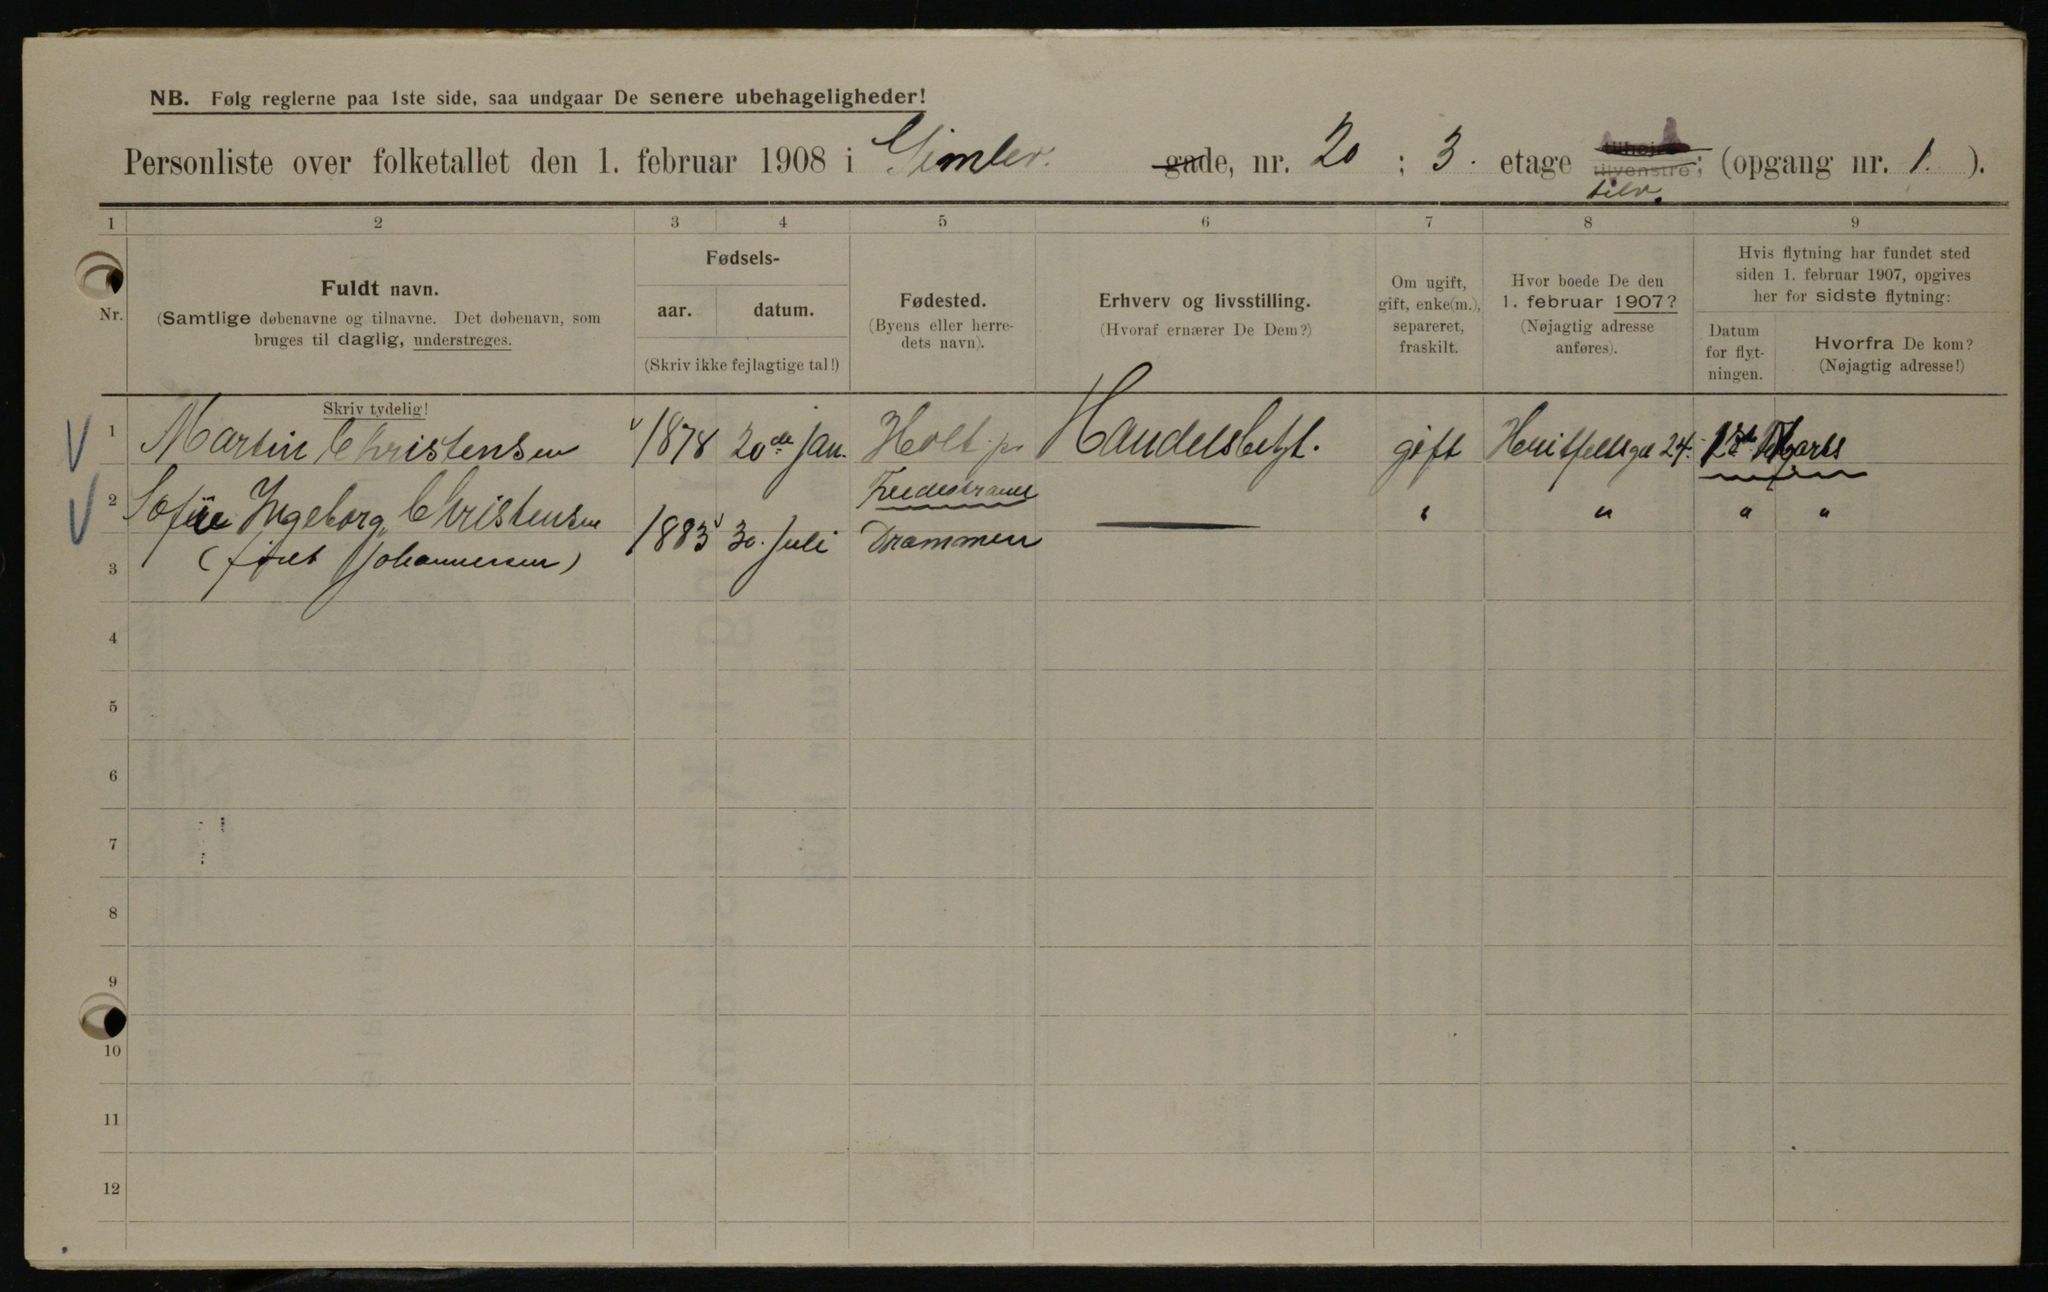 NB. Følg reglerne paa 1ste side, saa undgaar De senere ubehageligheder!
Personliste over folketallet den 1. februar 1908 i Gimlev. gade, nr. 20 ; 3. etage tilhøjre tilvenstre; (opgang nr. 1. ).
tilv.
1 2 3 4 5 6 7 8 9
Nr.
Fuldt navn.
(Samtlige døbenavne og tilnavne. Det døbenavn, som
bruges til daglig, understreges.
Skriv tydelig!
Fødsels-
aar. datum.
(Skriv ikke fejlagtige tal!)
Fødested.
(Byens eller herre-
dets navn).
Erhverv og livsstilling.
(Hvoraf ernærer De Dem?)
Om ugift,
gift, enke(m.),
separeret,
fraskilt.
Hvor boede De den
1. februar 1907?
(Nøjagtig adresse
anføres).
Hvis flytning har fundet sted
siden 1. februar 1907, opgives
her for sidste flytning:
Datum
for flyt-
ningen.
Hvorfra De kom?
(Nøjagtig adresse!)
1 Martin Christensen 1878 20de jan. Holt pr Handelsbetj. gift Huitfeltsgd 24.
2 Sofie Ingeborg Christensen 1883 30. Juli Drammen " " " "
(født Johannessen)
3
4
5
6
7
8
9
10
11
12